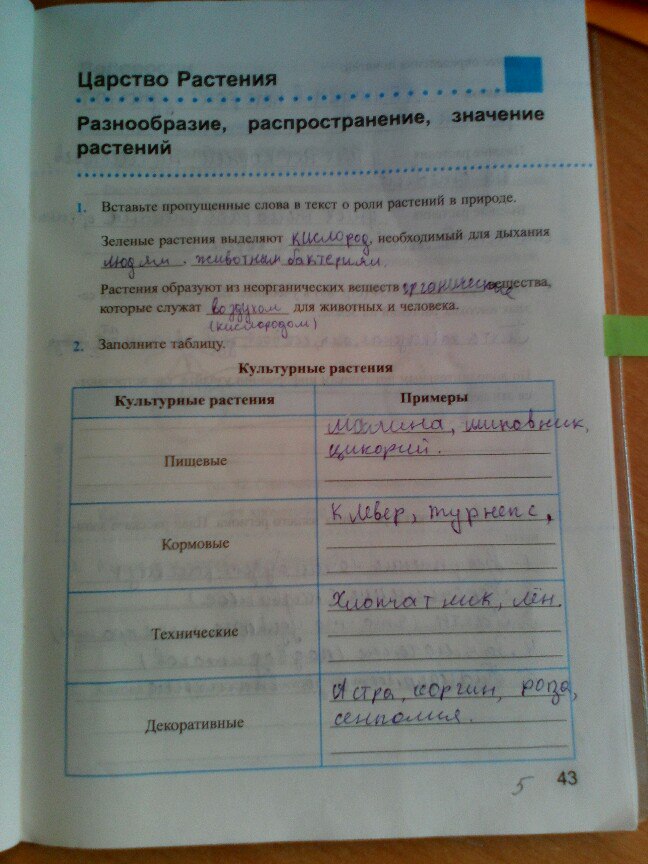 Царство Растения
Разнообразие, распространение, значение
растений
1. Вставьте пропущенные слова в текст о роли растений в природе.
Зеленые растения выделяют кислород, необходимый для дыхания
людям, животным бактериям.
Растения образуют из неорганических веществ органические вещества,
которые служат воздухом для животных и человека.
(кислородом)
2. Заполните таблицу.
Культурные растения
Культурные растения Примеры
Малина, шиповник,
цикорий.
Пищевые
Клевер, турнепс,
Кормовые
Хлопчатник, лён.
Технические
Астра, коргин, роза,
сенполия.
Декоративные
5 43